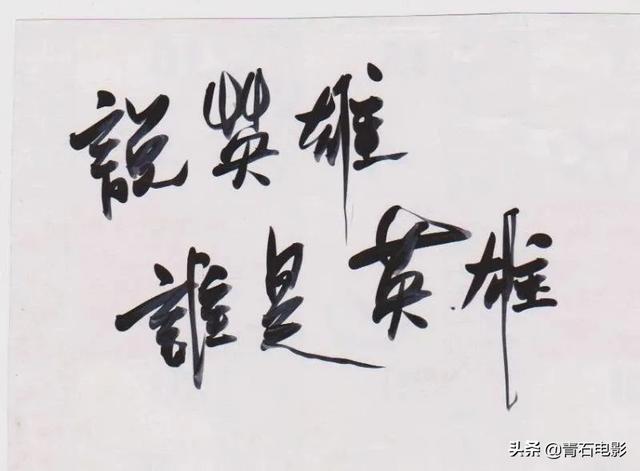 說英雄
誰是英雄
头条 @青石电影